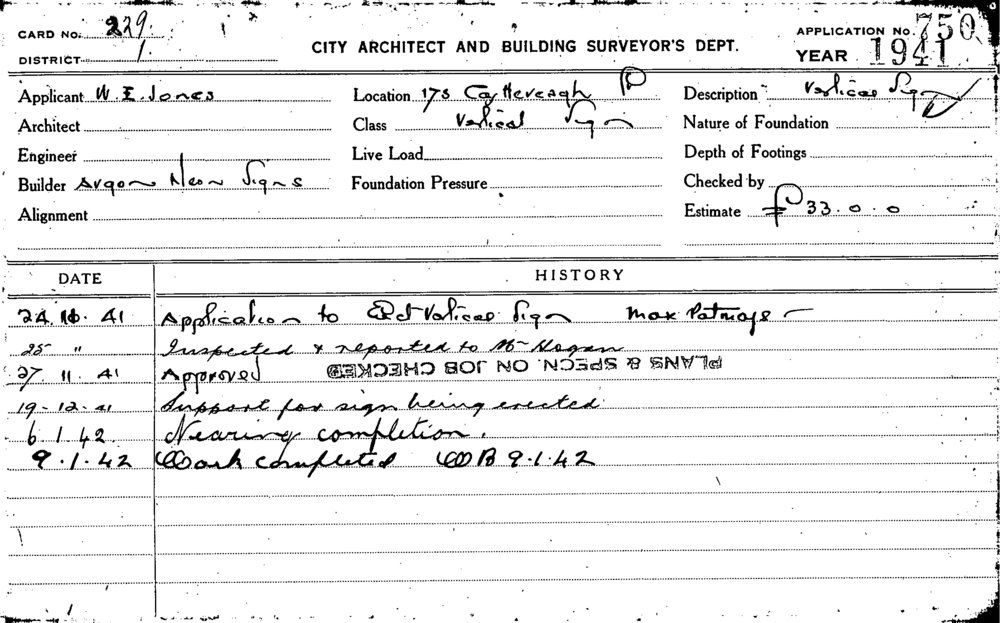 CARD No. 229.
DISTRICT 1
CITY ARCHITECT AND BUILDING SURVEYOR'S DEPT.
APPLICATION No. 750
YEAR 1941
Applicant W. E. Jones
Location 178
Description Vertical Sign
Architect
Class Vertical Sign
Nature of Foundation
Engineer
Live Load
Depth of Footings
Builder Argon Neon Signs
Foundation Pressure
Checked by
Alignment
Estimate £ 33. 0. 0
DATE HISTORY
24. 11. 41 Application to Erect Vertical Sign Max
25 " Inspected & reported to Mr Hogan
27. 11. 41 Approved PLANS & SPECN. ON JOB CHECKED
19-12-41 Support for sign being erected
6.1.42. Nearing completion.
9.1.42 Work completed WB 9.1.42